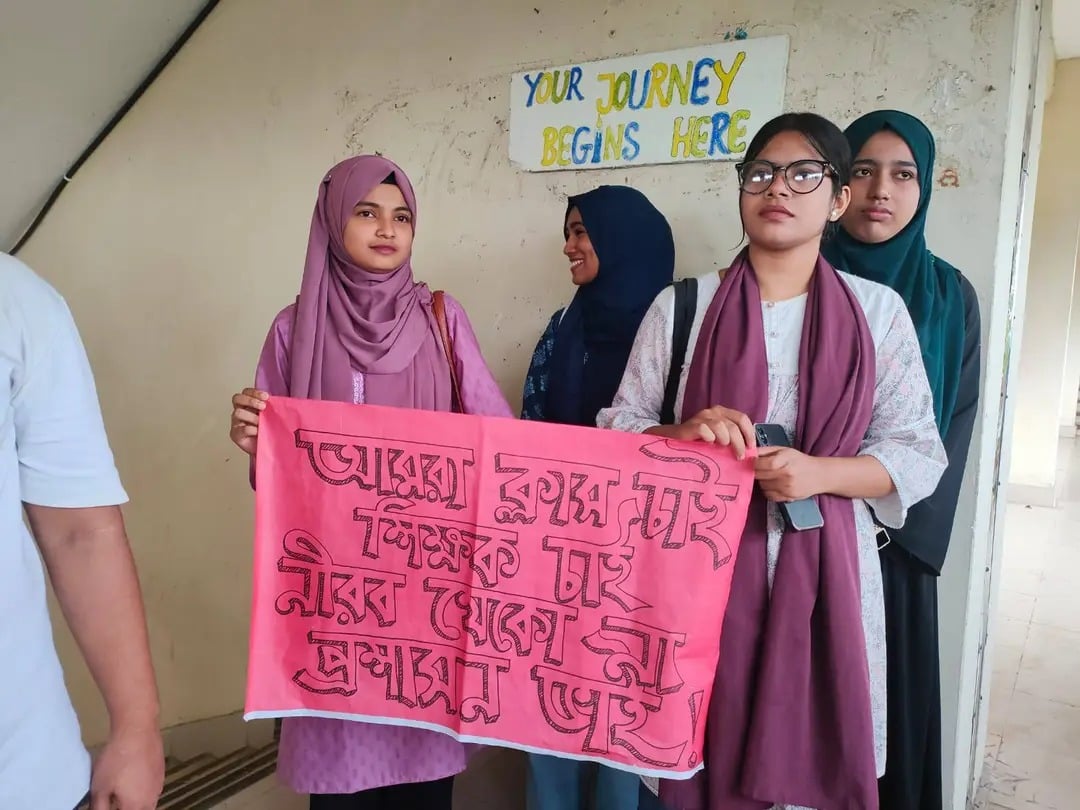 YOUR JOURNEY
BEGINS HERE
আমরা ক্লাস চাই
শিক্ষক চাই
নীরব থেকো না
প্রশাসন ভাই!